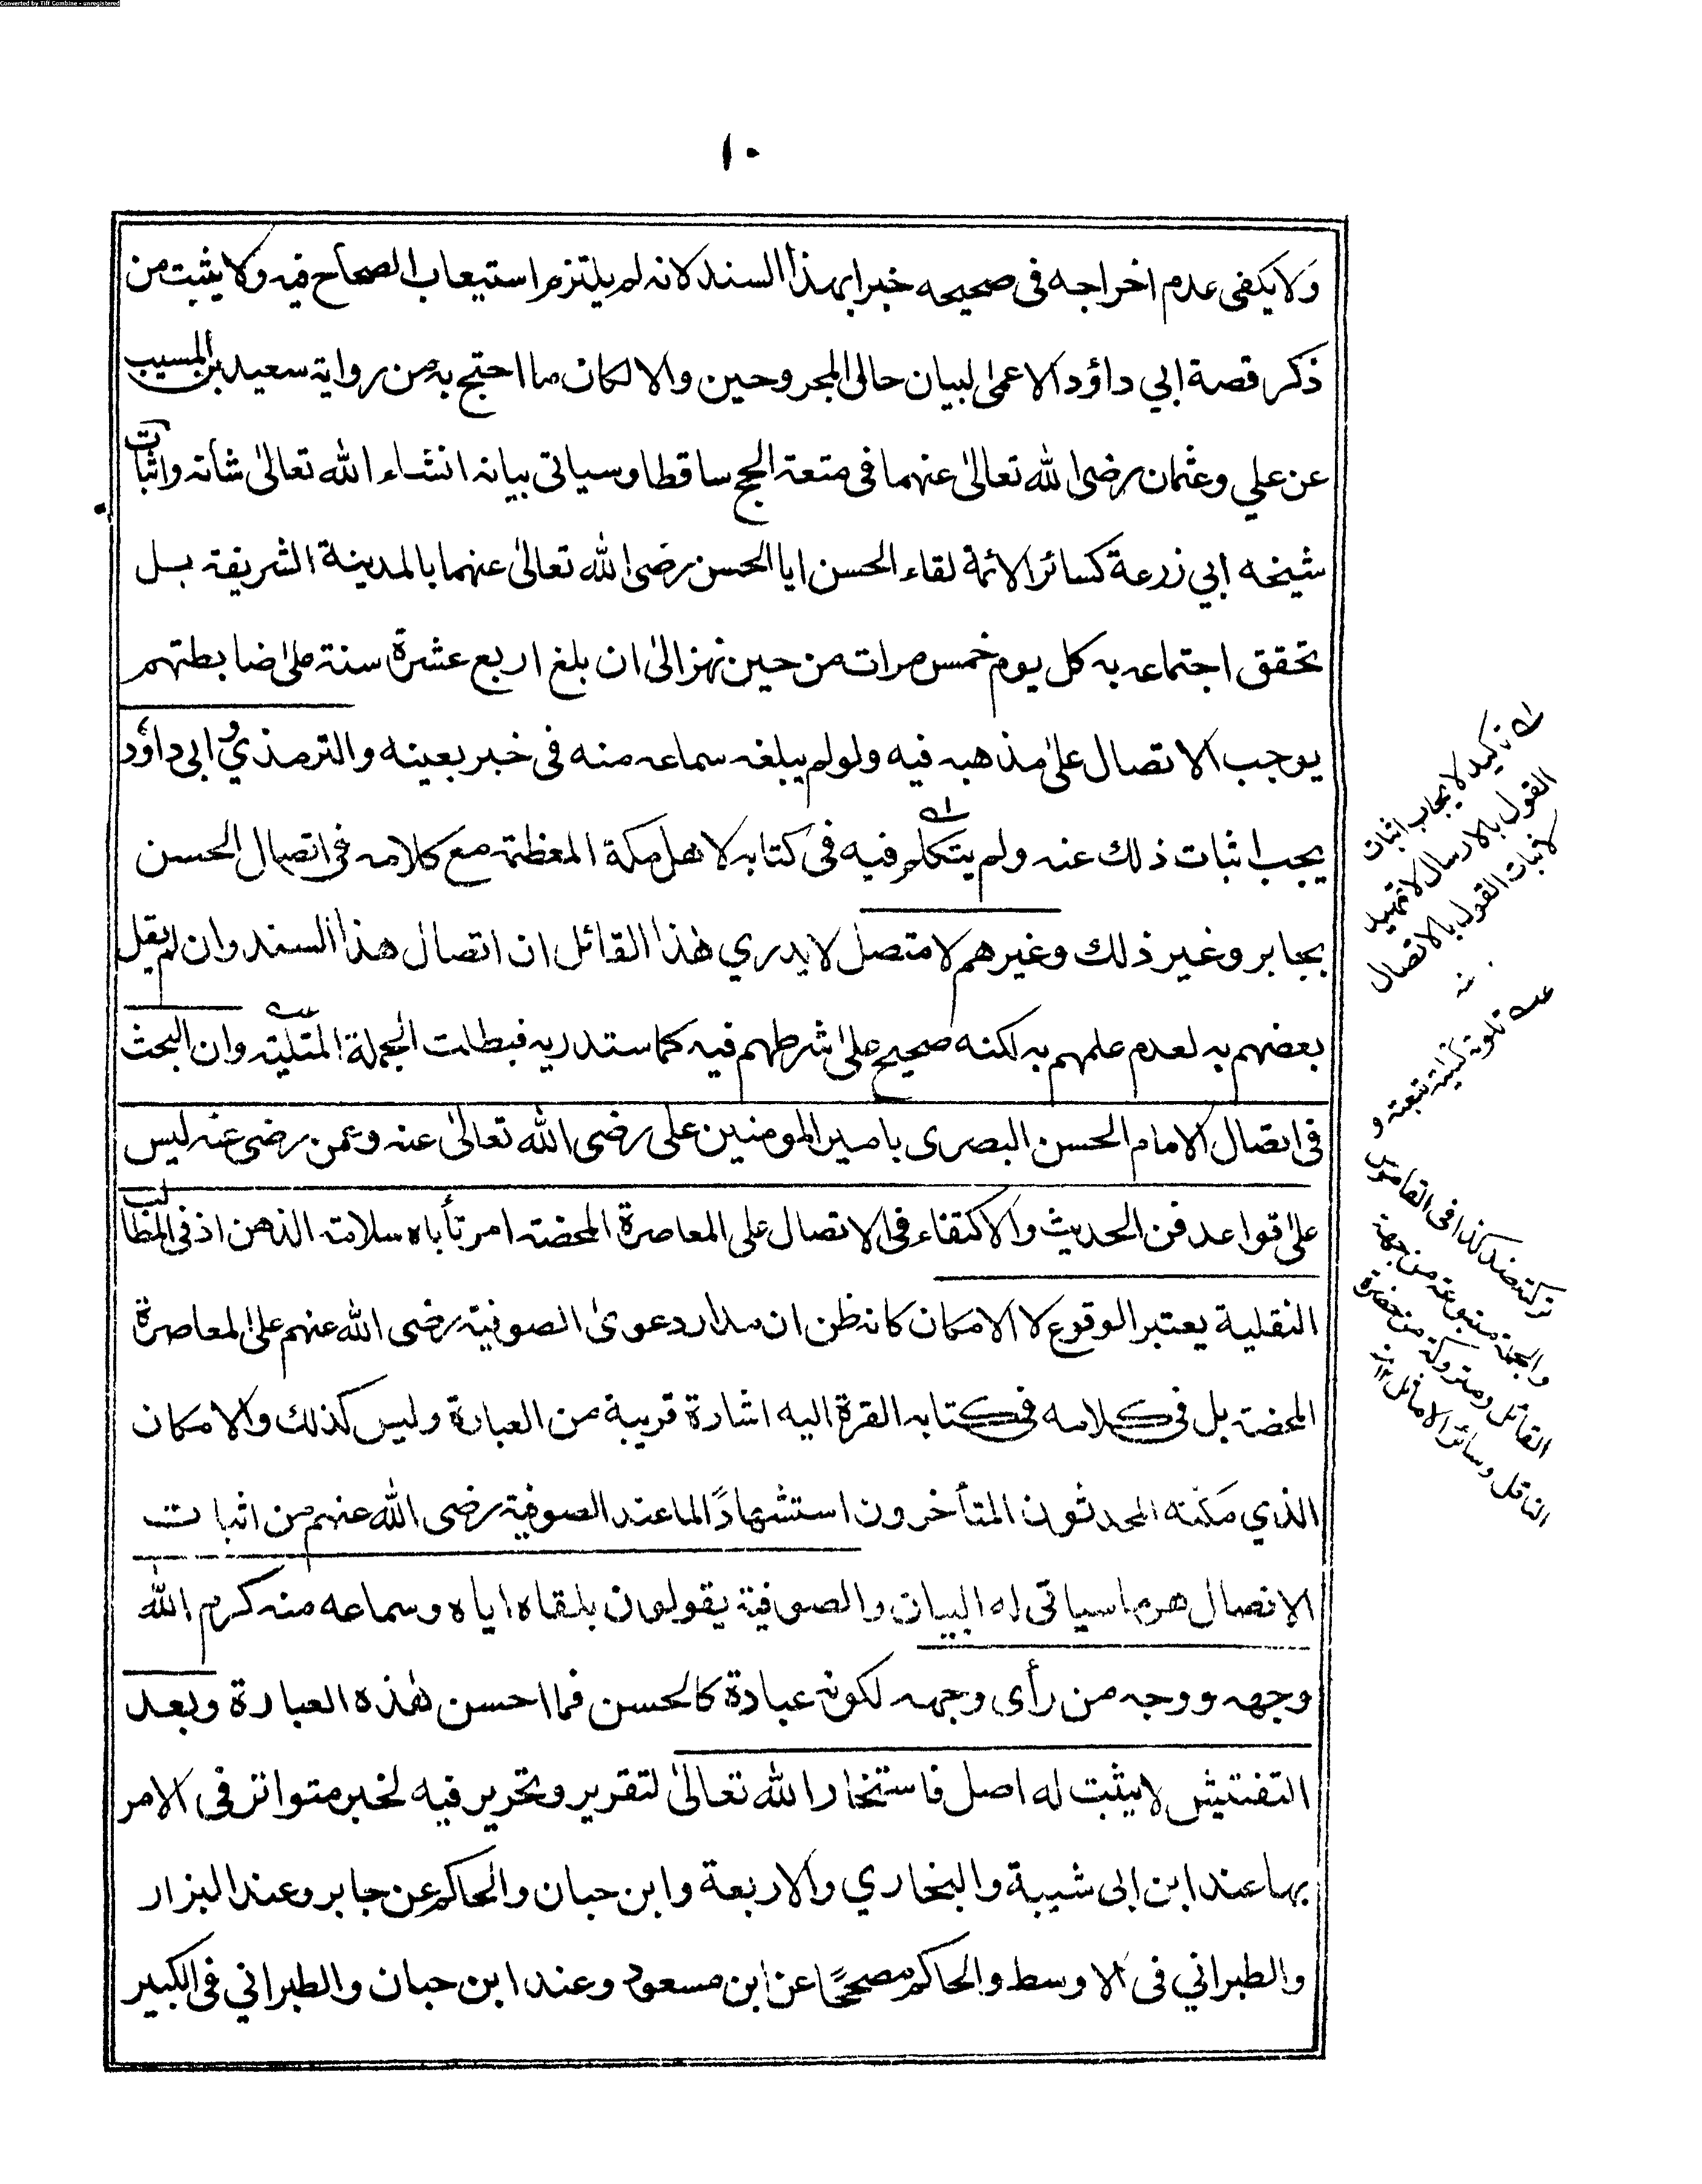 Converted by Tiff Combine - unregistered
١٠
ولا يكفى عدم اخراجه فى صحيحه خبرا بهذا السند لانه لم يلتزم استيعاب الصحاح فيه ولا يثبت من
ذكر قصة ابي داؤد الاعمىٰ لبيان حالى المجروحين والا لكان ما احتج به من رواية سعيد بن المسيب
عن علي وعثمان رضى الله تعالىٰ عنهما فى متعة الحج ساقطا وسياتى بيانه انشاء الله تعالىٰ شانه واثبات
شيخه ابي زرعة كسائر الائمة لقاء الحسن ابا الحسن رضى الله تعالىٰ عنهما بالمدينة الشريفة بل
تحقق اجتماعه به كل يوم خمس مرات من حين نهز الىٰ ان بلغ اربع عشرة سنة علىٰ ضابطتهم
يوجب الاتصال علىٰ مذهبه فيه ولو لم يبلغه سماعه منه فى خبر بعينه والترمذي و ابى داؤد
يجب اثبات ذلك عنه ولم يتكلم فيه فى كتابه لاهل مكة المعظمة مع كلامه فى اتصال الحسن
بجابر وغير ذلك وغيرهم لا متصل لا يدري هٰذا القائل ان اتصال هذا السند وان لم يقل
بعضهم به لعدم علمهم به لكنه صحيح علىٰ شرطهم فيه كما ستدريه فبطلت الجملة المتلية وان البحث
فى اتصال الامام الحسن البصرى بامير المومنين على رضى الله تعالىٰ عنه وعمن رضى عنه ليس
علىٰ قواعد فن الحديث والاكتفاء فى الاتصال على المعاصرة المحضة امر تأباه سلامة الذهن اذ فى المطالب
النقلية يعتبر الوقوع لا الامكان كانه ظن ان مدار دعوىٰ الصوفية رضى الله عنهم علىٰ المعاصرة
المحضة بل فى كلامه فى كتابه القرة اليه اشارة قريبة من العبارة وليس كذلك والامكان
الذي مكنه المحدثون المتأخرون استشهادًا لما عند الصوفية رضى الله عنهم من اثبات
الاتصال هم ما سياتى له البيان والصوفية يقولون بلقاه اياه وسماعه منه كرم الله
وجهه ووجه من رأى وجهه لكونه عبادة كالحسن فما احسن هٰذه العبارة وبعد
التفتيش لا يثبت له اصل فاستخار الله تعالىٰ لتقرير وتحرير فيه لخبر متواتر فى الامر
بها عند ابن ابى شيبة والبخاري والاربعة وابن حبان والحاكم عن جابر وعند البزار
والطبراني فى الاوسط والحاكم مصححًا عن ابن مسعود وعند ابن حبان والطبراني فى الكبير
تاكيد لا يجاب اثبات
القول بالارسال لا تمهيد
لاثبات القول بالاتصال
منه
تلوته كتليته تبعته و
تركته ضد كذا فى القاموس
والجملة متبوعة من جهة
القائل ومتروكة من حضرة
الناقل وسائر الاماثل ١٢